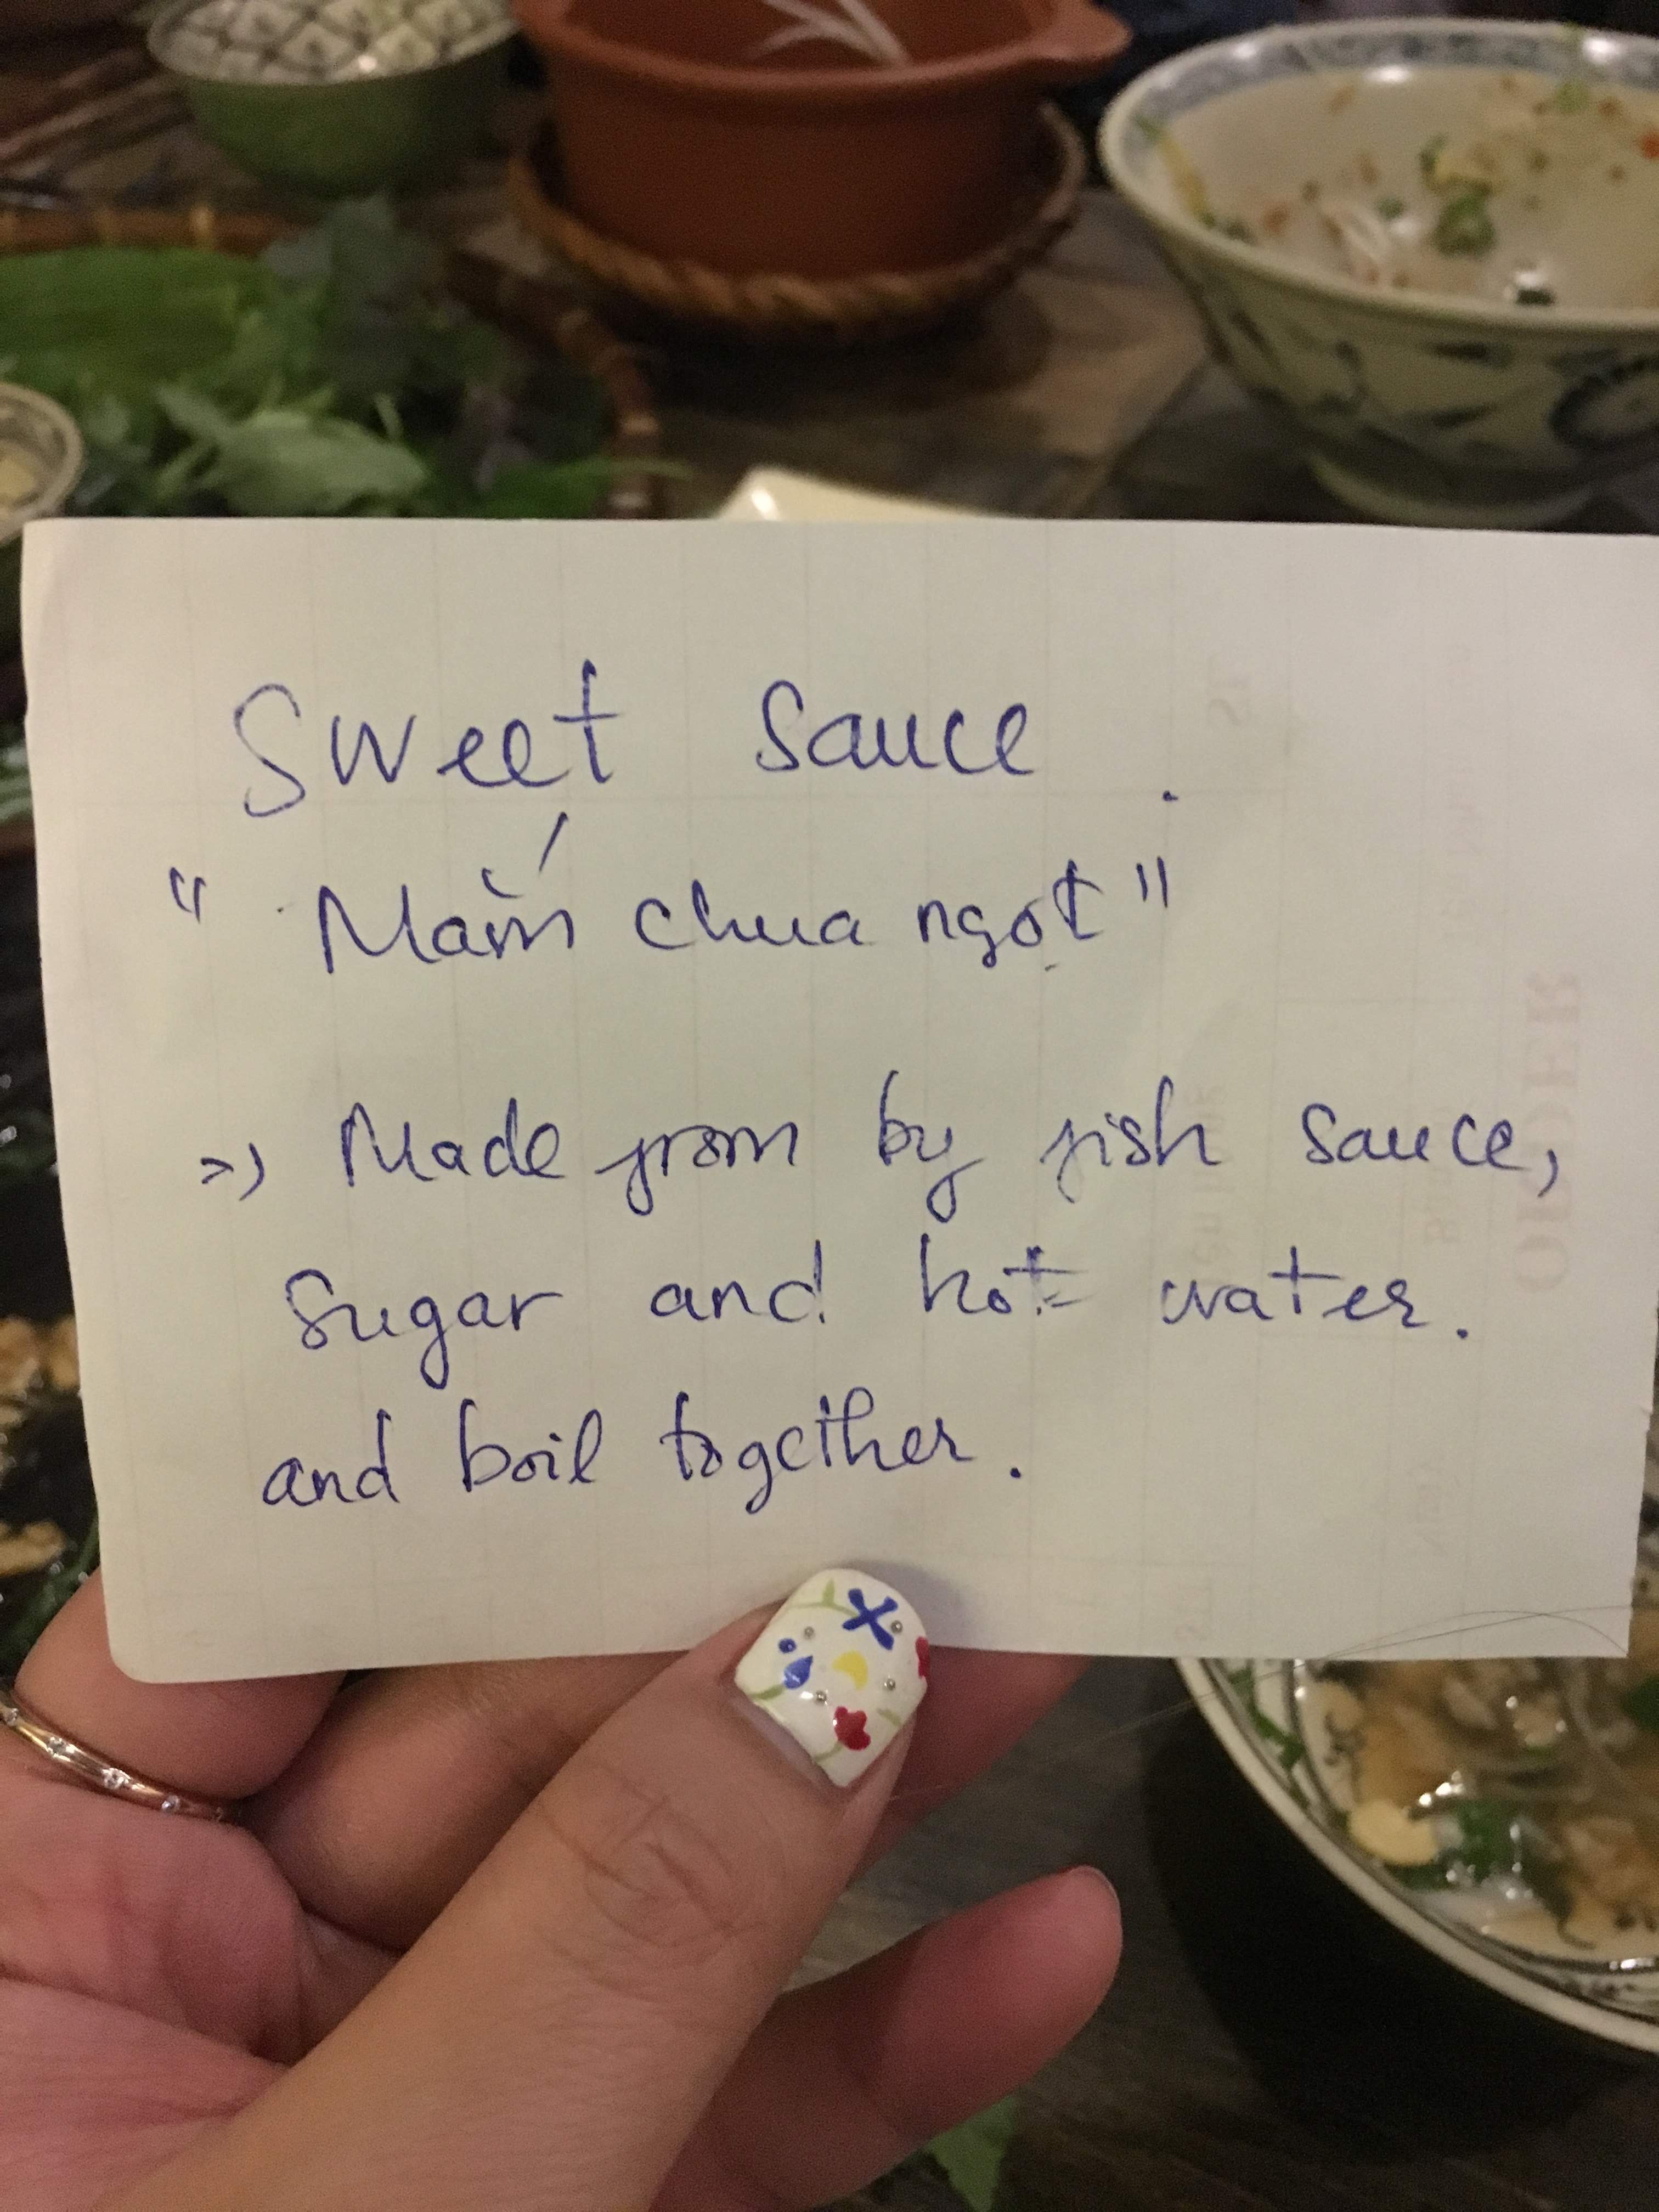 Sweet Sauce.
"Mắm chua ngọt"
=> Made from by fish sauce,
Sugar and hot water.
and boil together.
ORDER